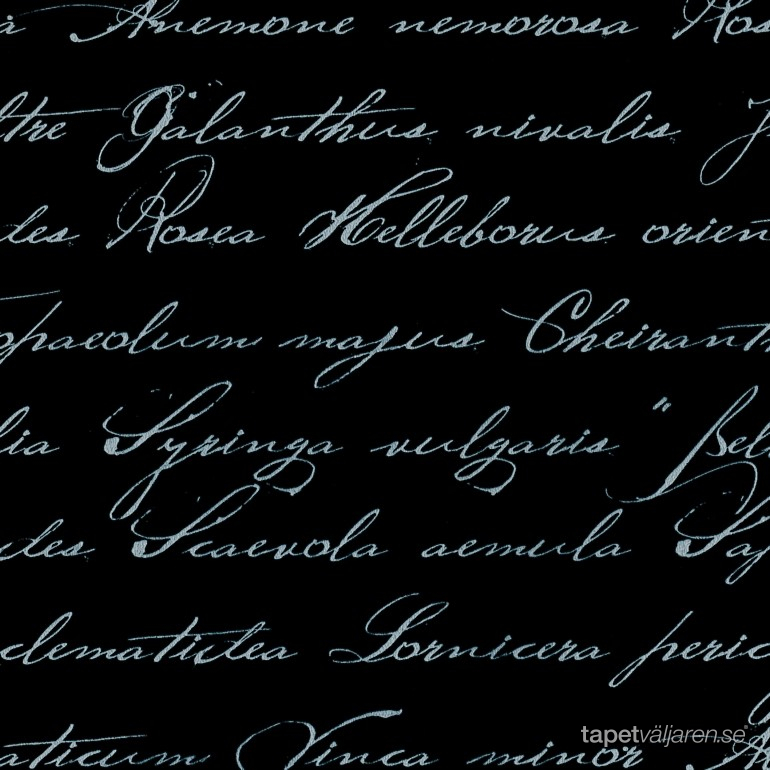 a Anemone nemorosa Ros
ltre Galanthus nivalis J
des Rosea Helleborus orien
opaeolum majus Cheiranth
lia Syringa vulgaris "Bell
des Scaevola aemula Sag
clematidea Lornicera peric
aticum Vinca minor
tapetväljaren.se